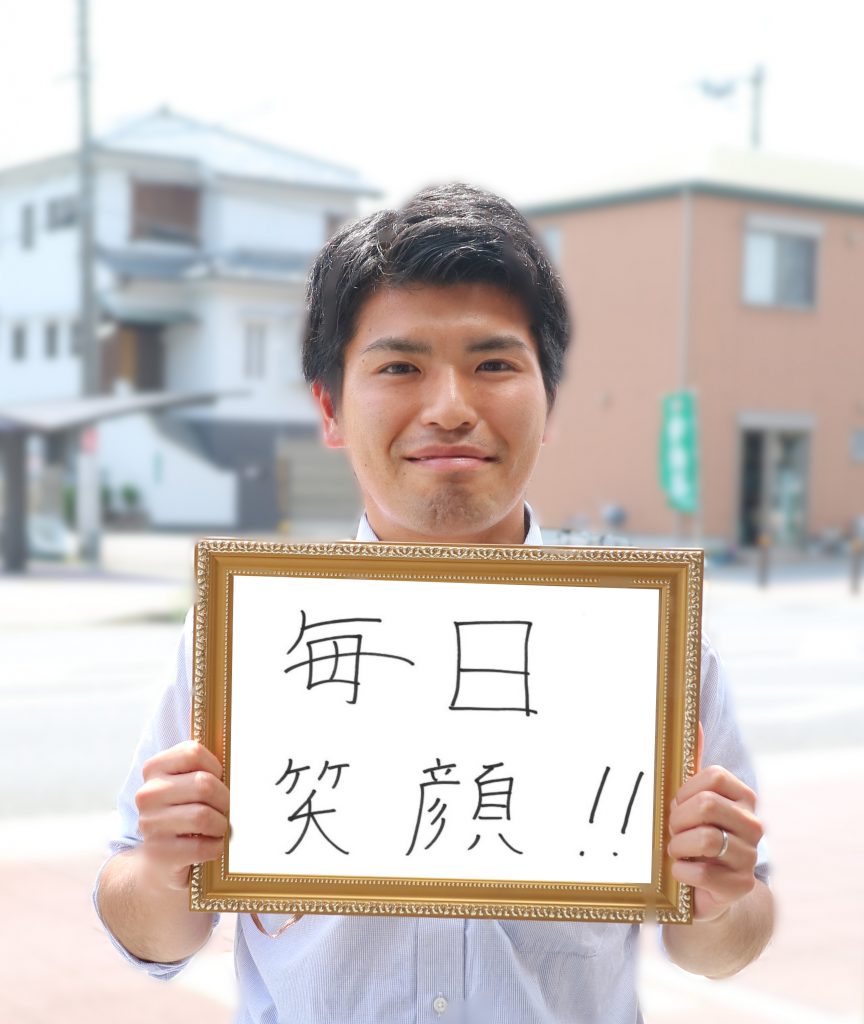 毎日
笑顔!!